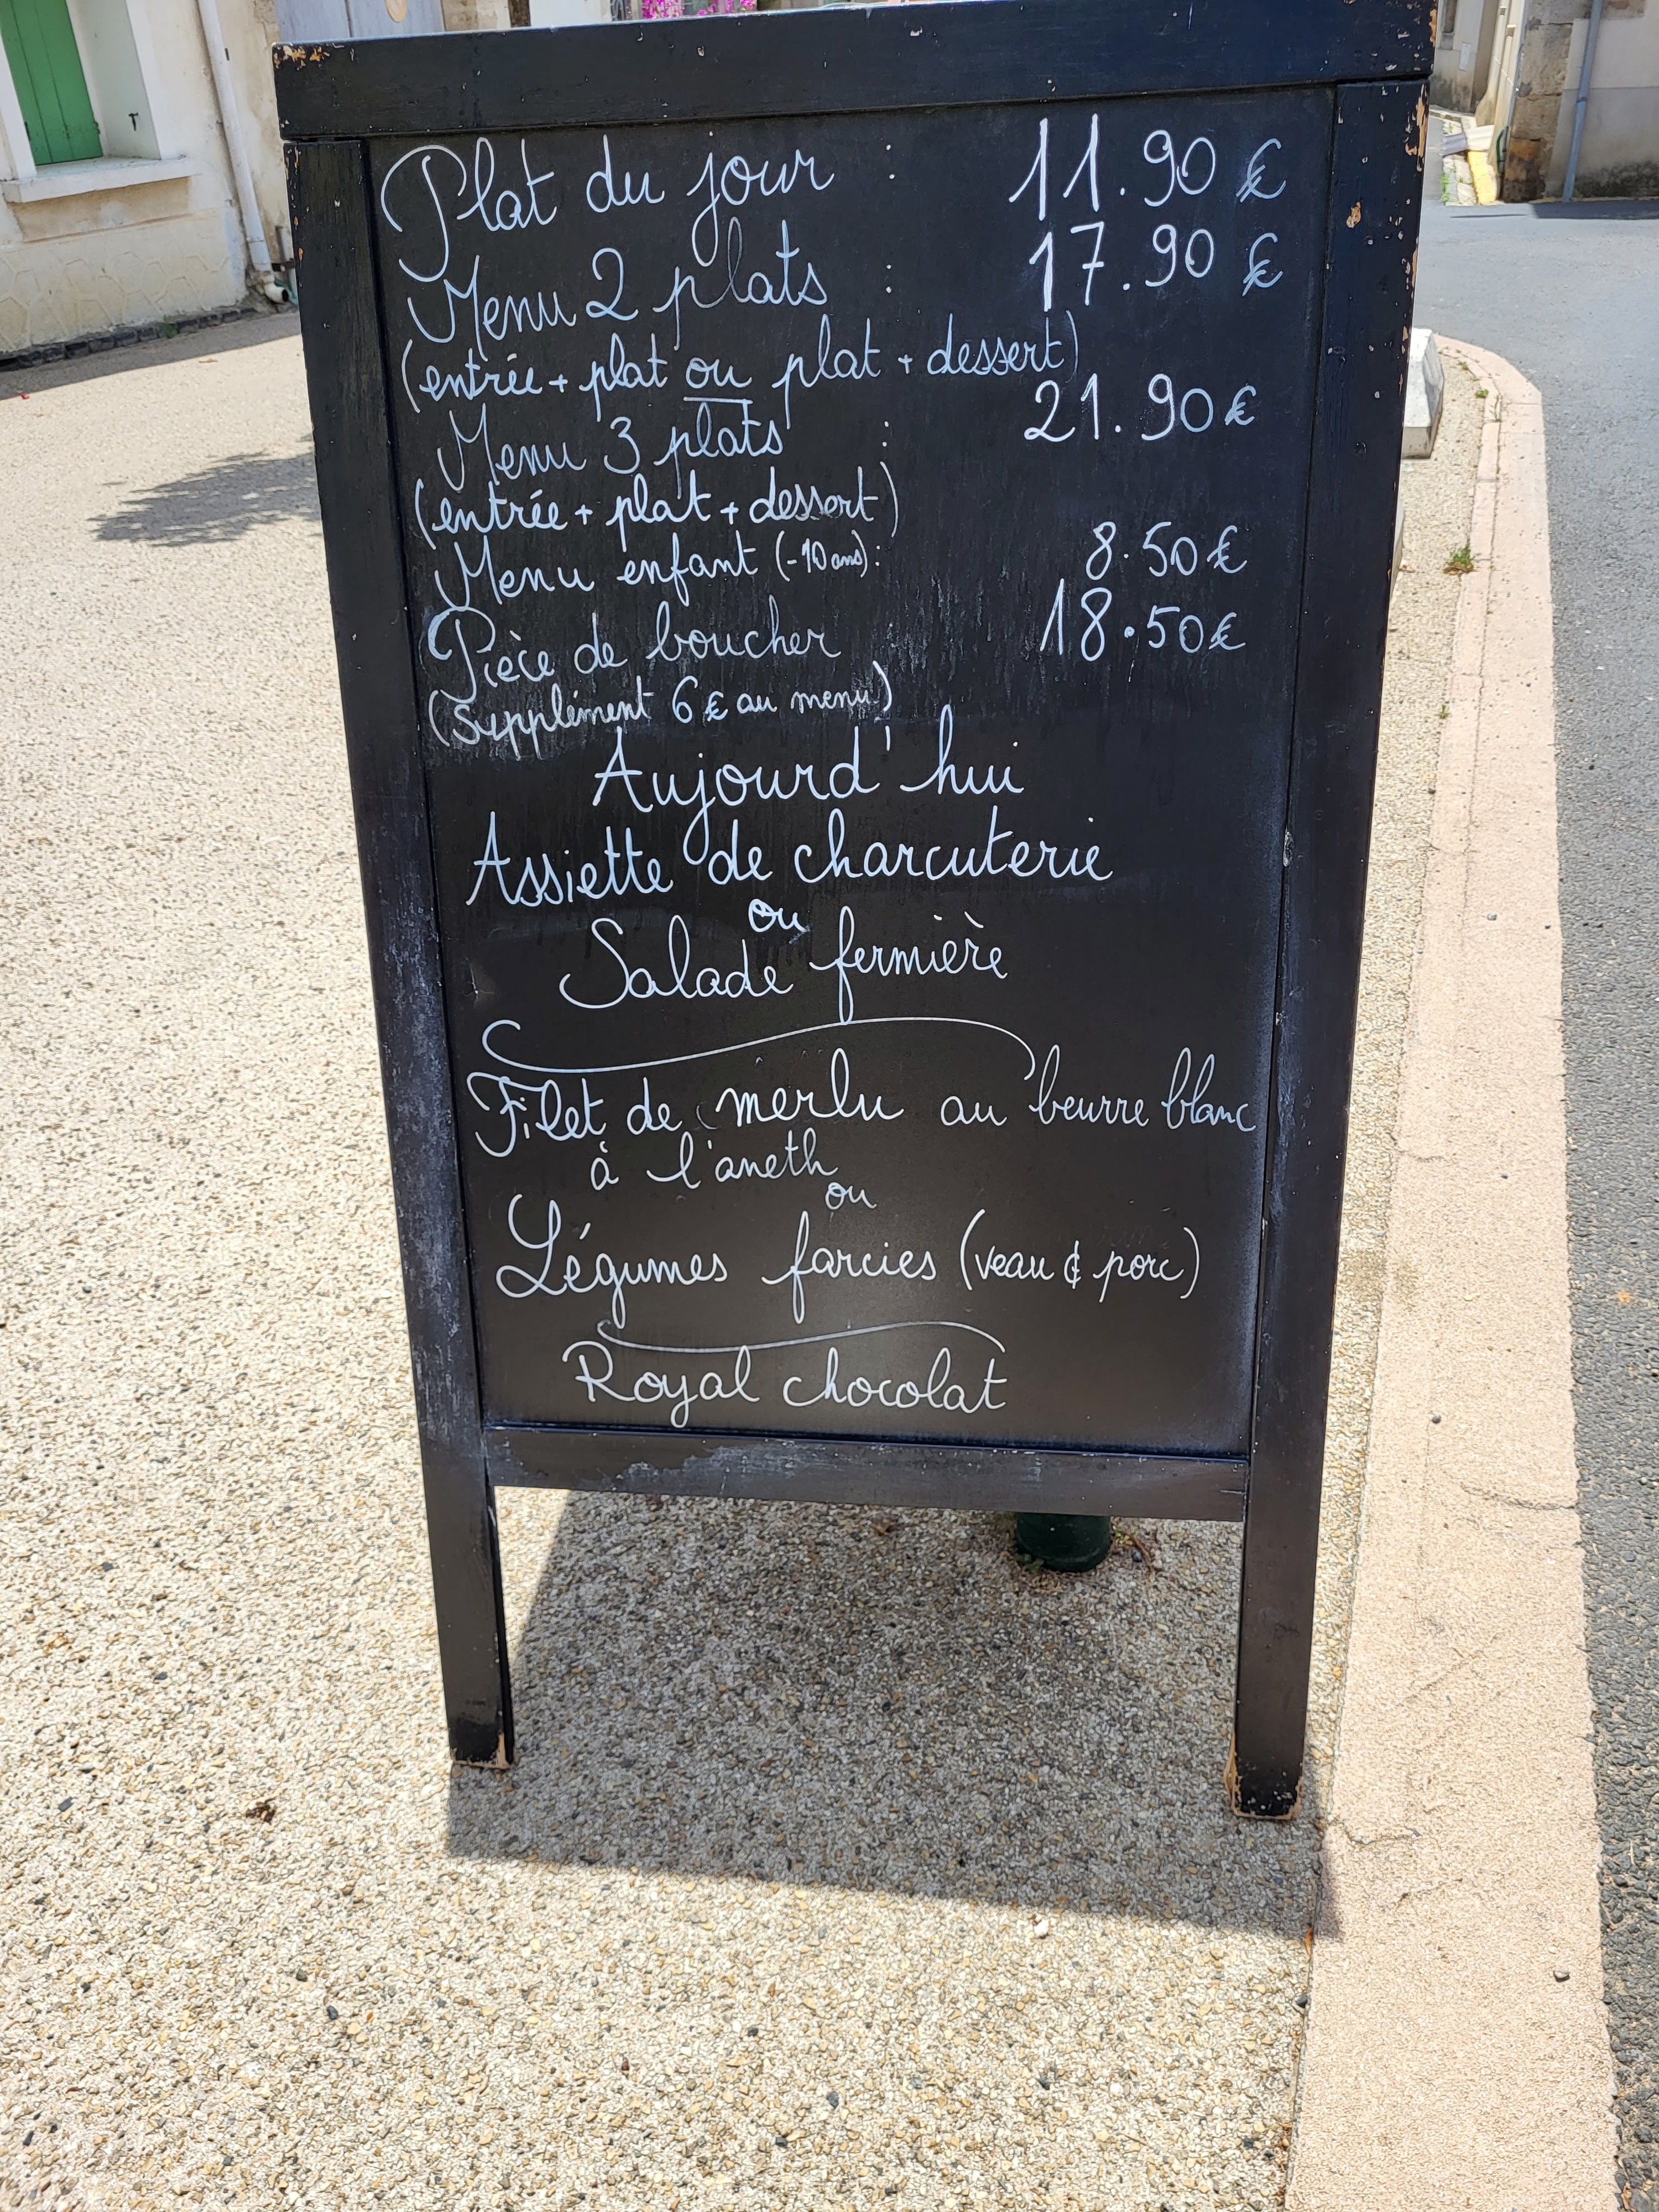 Plat du jour : 11.90 €
Menu 2 plats : 17.90 €
(entrée + plat ou plat + dessert)
Menu 3 plats : 21.90 €
(entrée + plat + dessert)
Menu enfant (-10 ans) : 8.50 €
Pièce de boucher : 18.50 €
(supplément 6 € au menu)
Aujourd'hui
Assiette de charcuterie
ou
Salade fermière
Filet de merlu au beurre blanc
à l'aneth
ou
Légumes farcies (veau & porc)
Royal chocolat